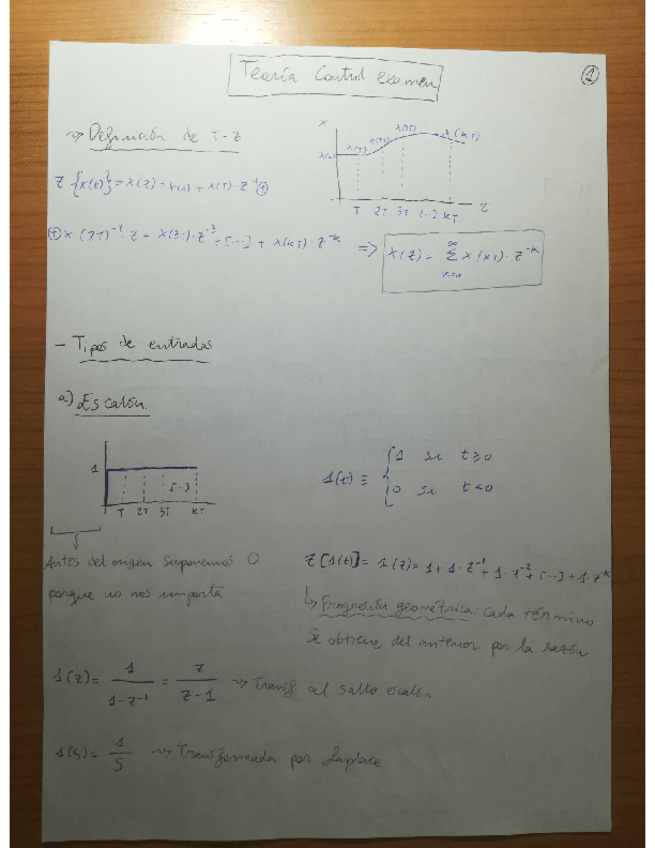 Teoría Control examen
1
~> Definición de T-Z
Z {x(t)} = X(z) = x(0) + x(T)·z⁻¹ ⊕
⊕ x(2T)⁻²·z - x(3T)·z⁻³ + [...] + x(kT)·z⁻ᵏ => X(z) = ∞ Σ k=0 x(kT)·z⁻ᵏ
x
x(0) x(T) x(2T) x(3T) x(kT)
T 2T 3T [..] kT t
- Tipos de entradas
a) Escalón
1
[...]
T 2T 3T kT
1(t) ≡ { 1 si t≥0
0 si t<0
Antes del origen suponemos 0
porque no nos importa
Z[1(t)] = 1(z) = 1 + 1·z⁻¹ + 1·z⁻² + [...] + 1·z⁻ᵏ
↳ Progresión geométrica: Cada término
se obtiene del anterior por la razón
1(z) = 1/(1-z⁻¹) = z/(z-1) ~> Transf. al salto escalón
1(s) = 1/S ~> Transformada por Laplace